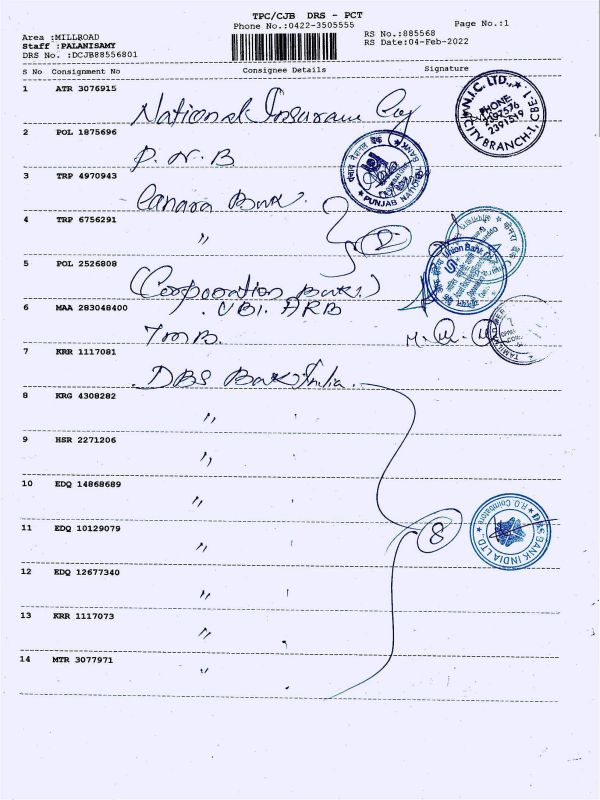 TPC/CJB DRS - PCT
Phone No.:0422-3505555
Page No.:1
Area :MILLROAD
RS No.:885568
Staff :PALANISAMY
RS Date:04-Feb-2022
DRS No. :DCJB88556801
S No Consignment No Consignee Details Signature
1 ATR 3076915
National Insurance Coy
N.I.C. LTD.,
PHONE:
2397576
2391519
CITY BRANCH-1, CBE-1
2 POL 1875696
P.N.B
PUNJAB NATIONAL BANK
3 TRP 4970943
Canara Bank.
4 TRP 6756291
"
2
5 POL 2526808
(Corporation Bank)
Union Bank
6 MAA 283048400
UBI. ARB
TMB.
7 KRR 1117081
DBS Bank India.
8 KRG 4308282
"
9 HSR 2271206
"
10 EDQ 14868689
"
11 EDQ 10129079
"
8
DBS BANK INDIA LTD.,
R.O. Coimbatore
12 EDQ 12677340
"
13 KRR 1117073
"
14 MTR 3077971
"